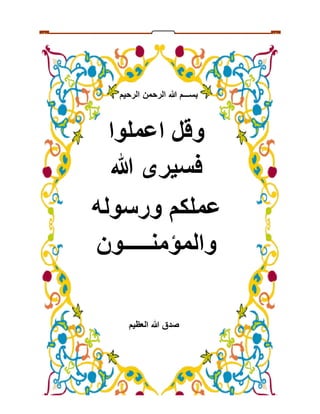 بســـم الله الرحمن الرحيم
وقل اعملوا
فسيرى الله
عملكم ورسوله
والمؤمنـــــون
صدق الله العظيم